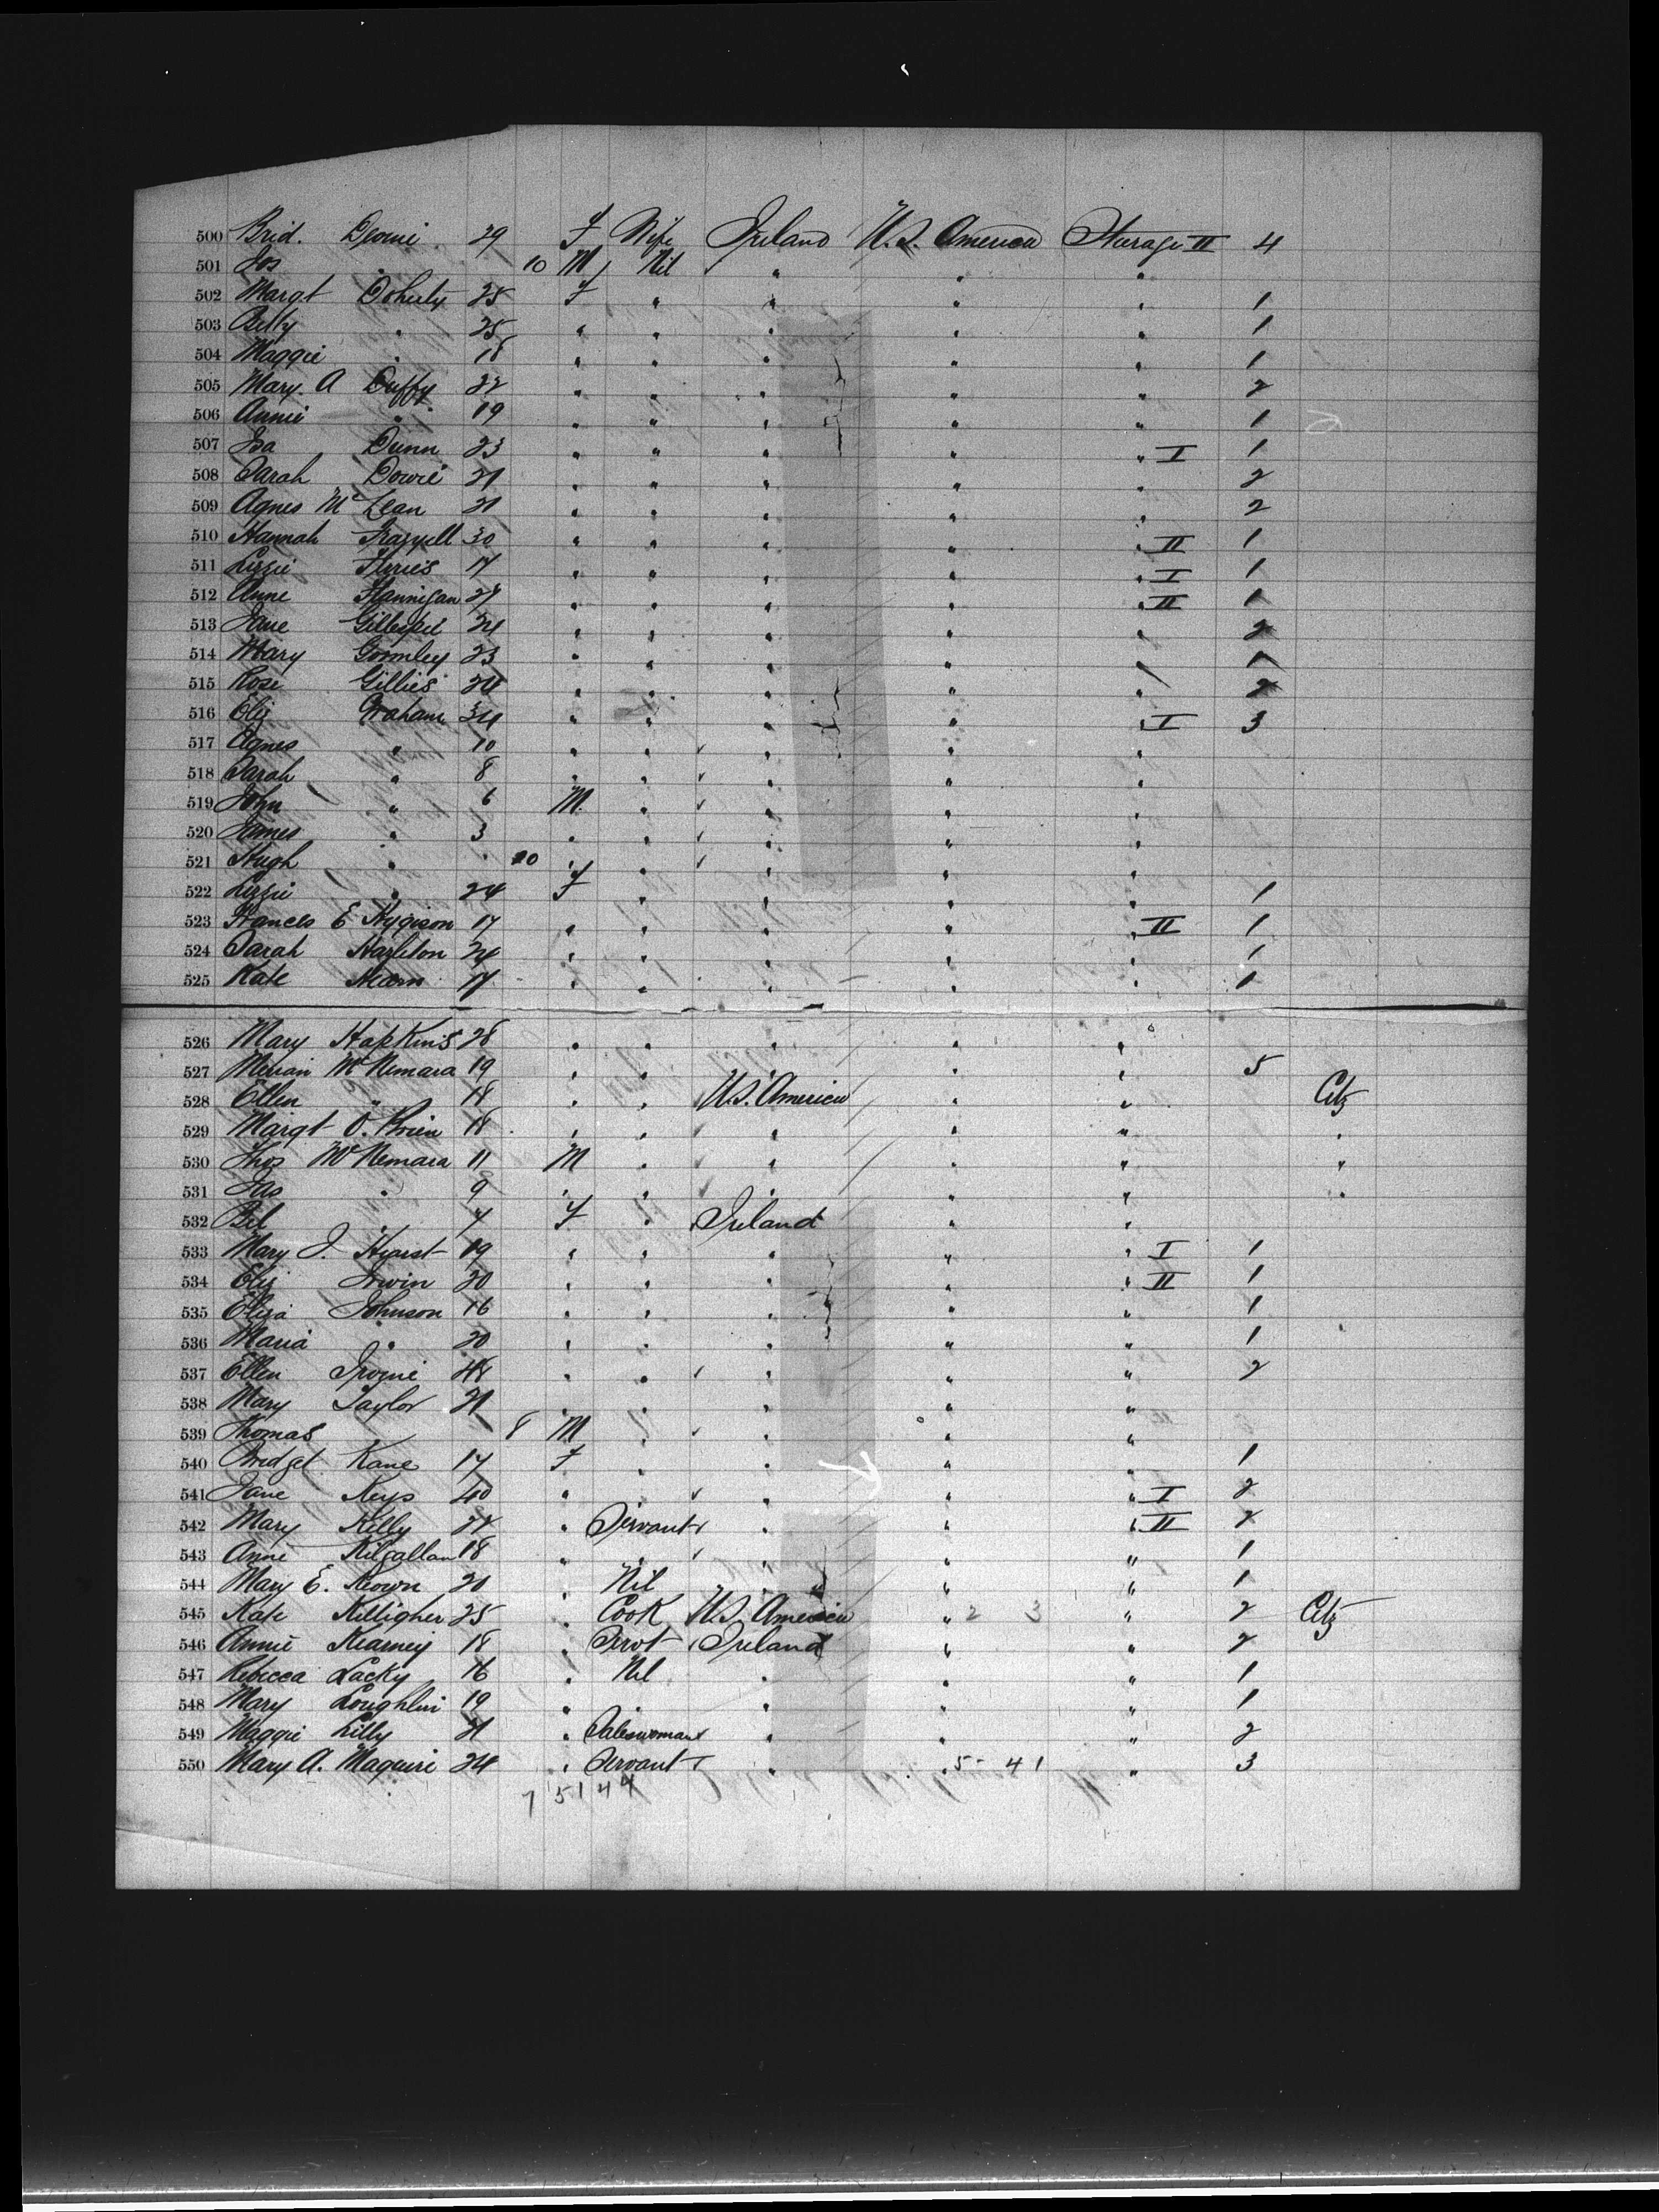 500 Brid. 29 F Wife Ireland U.S. America Steerage II 4
501 Jos " 10 M Nil " " "
502 Margt Doherty 25 F " " " " 1
503 Betty " 25 " " " " " 1
504 Maggie " 18 " " " " " 1
505 Mary. A Duffy 22 " " " " " 2
506 Annie " 19 " " " " " 1
507 Isa Dunn 23 " " " " " I 1
508 Sarah Dowie 21 " " " " " 2
509 Agnes Mc Lean 21 " " " " " 2
510 Hannah 30 " " " " " II 1
511 Lizzie 17 " " " " " I 1
512 Anne Flannigan 27 " " " " " II 1
513 Jane Gillespie 24 " " " " " 2
514 Mary Gormley 23 " " " " 1
515 Rose Gillies 24 " " " " " 2
516 Eliz Graham 34 " " " " " I 3
517 Agnes " 10 " " " " "
518 Sarah " 8 " " " " "
519 John " 6 M. " " " "
520 James " 3 " " " " "
521 Hugh " 10 " " " " "
522 Lizzie " 24 F " " " " 1
523 Frances E 17 " " " " " II 1
524 Sarah Hazleton 24 " " " " " 1
525 Kate Hearn 17 " " " " " 1
526 Mary Hopkins 28 " " " " "
527 Mc Nemara 19 " " " " " 5
528 Ellen " 18 " " U.S. America " " Citz
529 Margt O. Brien 18 " " " " " "
530 Thos Mc Nemara 11 M " " " " "
531 Jas " 9 " " " " " "
532 7 F " Ireland " "
533 Mary J. 19 " " " " " I 1
534 Eliz Irwin 20 " " " " " II 1
535 Eliza Johnson 16 " " " " " 1
536 Maria " 20 " " " " " 1
537 Ellen 48 " " " " " 2
538 Mary Taylor 21 " " " " "
539 Thomas " 8 M " " " "
540 Bridget Kane 17 F " " " " 1
541 Jane Keys 40 " " " " I 2
542 Mary Killy 22 " Servant " " " II 2
543 Anne Kilgallan 18 " " " " " 1
544 Mary E. Keown 20 " Nil " " " 1
545 Kate Killigher 25 " Cook U.S. America " 2 3 " 2 Citz
546 Annie Kearney 18 " Servt Ireland " " 2
547 Rebecca Lacky 16 " Nil " " " 1
548 Mary Loughlin 19 " " " " " 1
549 Maggie Lilly 21 " Saleswoman " " " 2
550 Mary A. Maguire 24 " Servant " " 5 - 41 " 3
7 5144